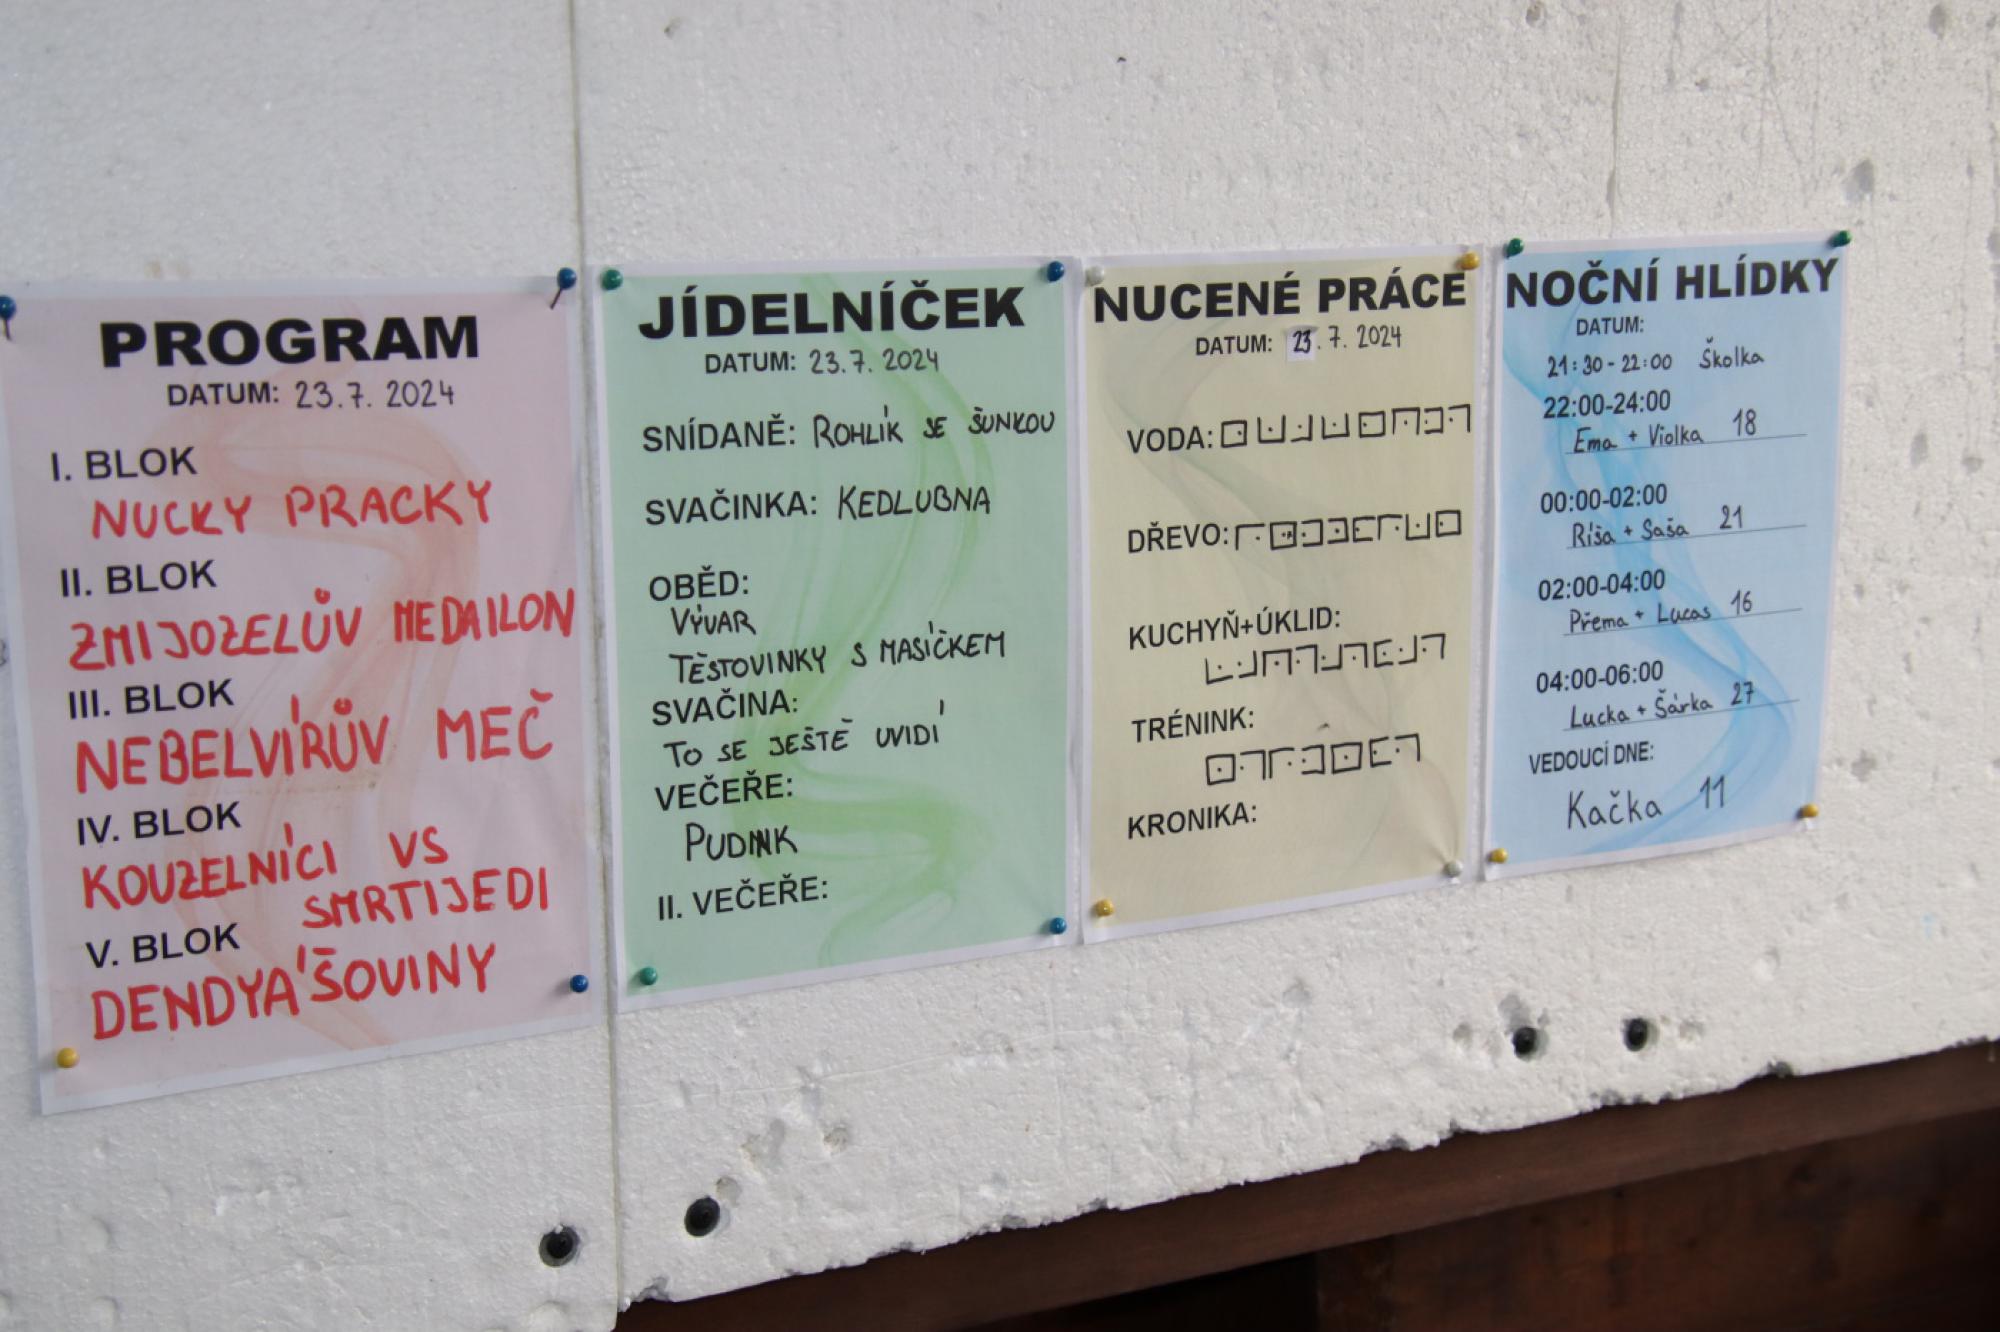 PROGRAM
DATUM: 23.7. 2024
I. BLOK
NUCKY PRACKY
II. BLOK
ZMIJOZELŮV MEDAILON
III. BLOK
NEBELVÍRŮV MEČ
IV. BLOK
KOUZELNÍCI VS
SMRTIJEDI
V. BLOK
DENDYÁŠOVINY
JÍDELNÍČEK
DATUM: 23.7. 2024
SNÍDANĚ: ROHLÍK SE ŠUNKOU
SVAČINKA: KEDLUBNA
OBĚD:
VÝVAR
TĚSTOVINKY S MASÍČKEM
SVAČINA:
TO SE JEŠTĚ UVIDÍ
VEČEŘE:
PUDINK
II. VEČEŘE:
NUCENÉ PRÁCE
DATUM: 23. 7. 2024
VODA:
DŘEVO:
KUCHYŇ+ÚKLID:
TRÉNINK:
KRONIKA:
NOČNÍ HLÍDKY
DATUM:
21:30-22:00 Školka
22:00-24:00
Ema + Violka 18
00:00-02:00
Ríša + Saša 21
02:00-04:00
Přema + Lucas 16
04:00-06:00
Lucka + Šárka 27
VEDOUCÍ DNE:
Kačka 11